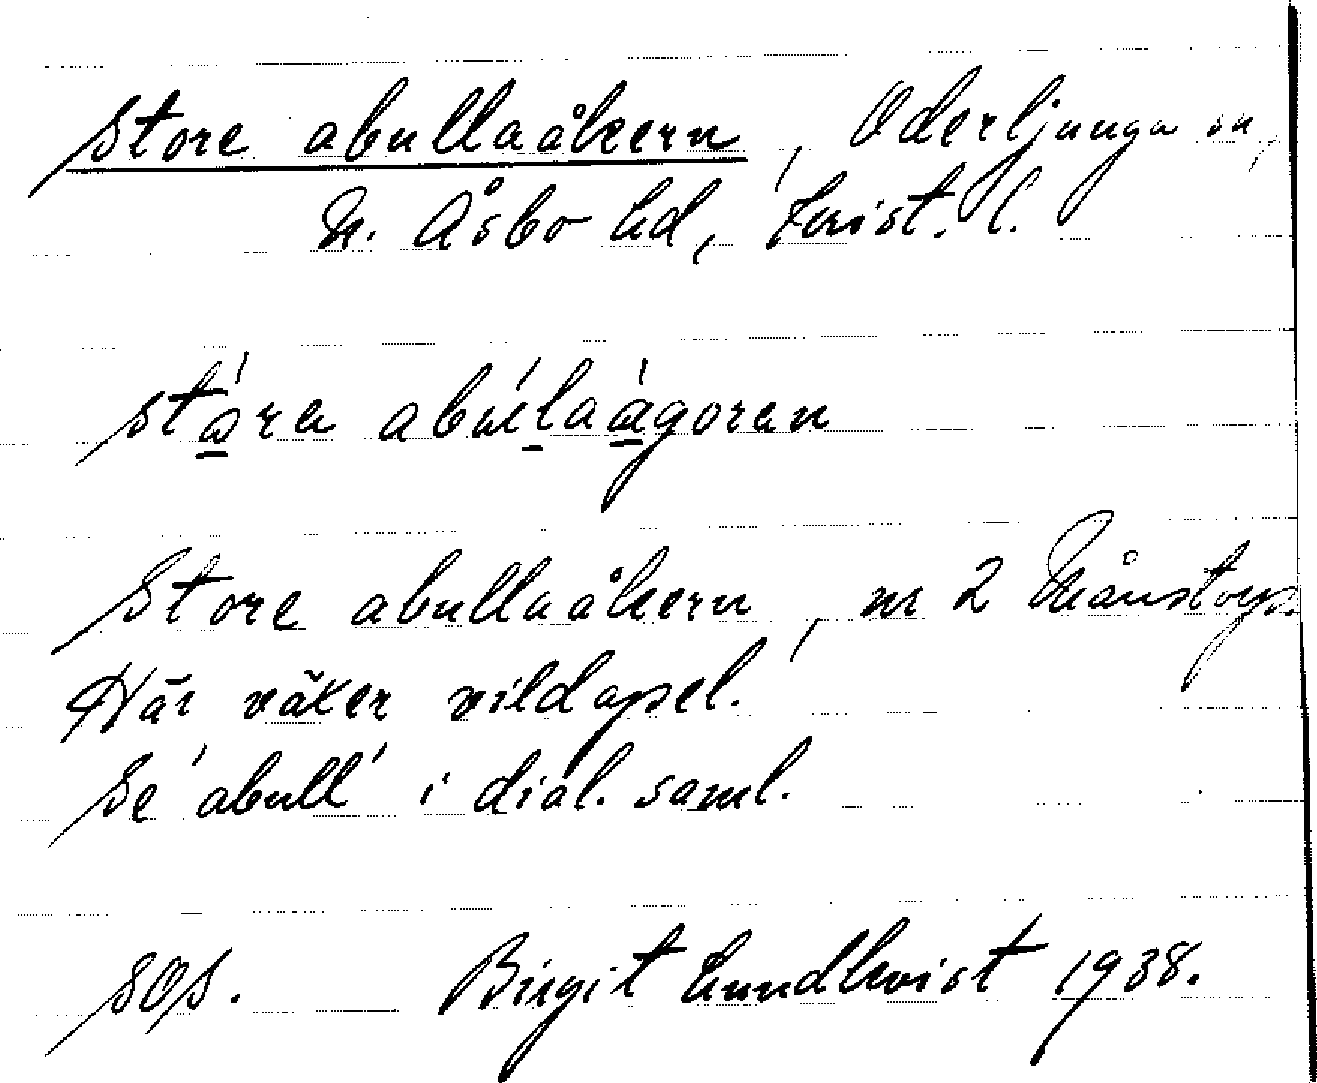 Store abullaåkern, Oderljunga sn,
N. Åsbo hd, Krist. l.
stǻra abúlaágoren
Store abullaåkern, nr 2 Månstorp
Här växer vildapel.
Se 'abull' i dial. saml.
SOS. Birgit Lundkvist 1938.